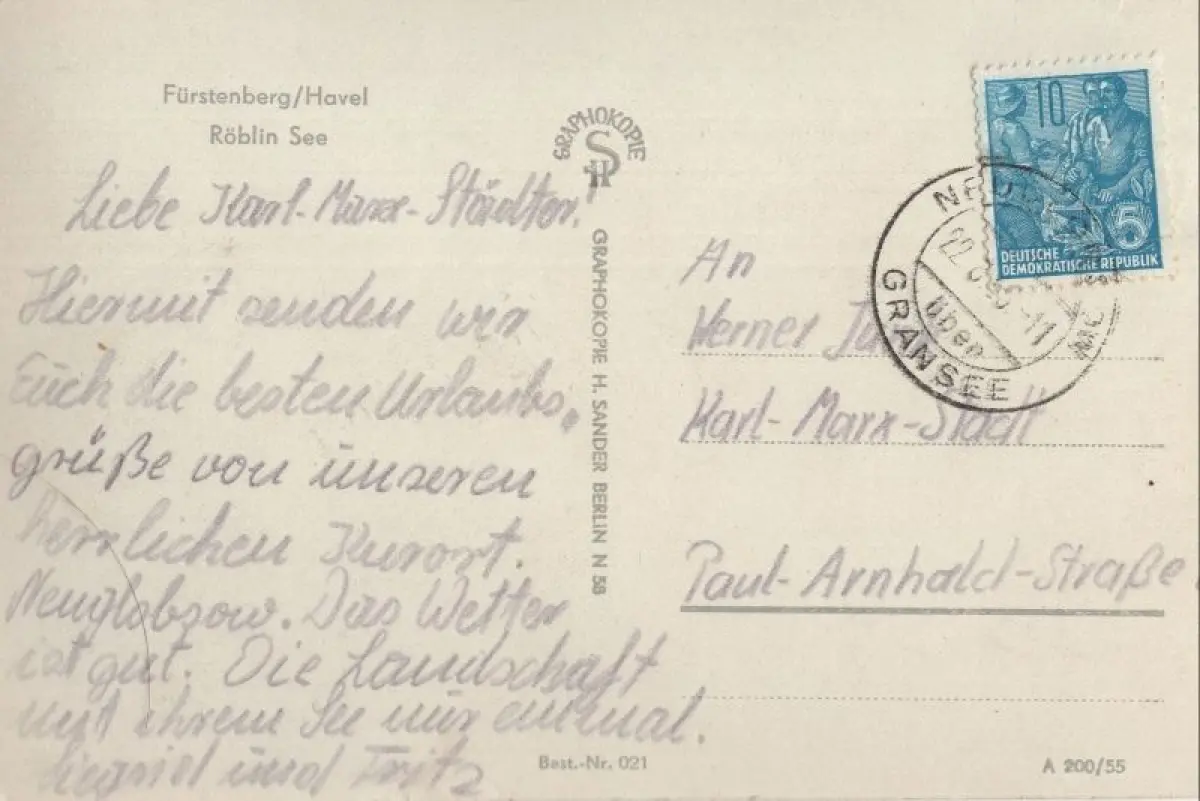 Fürstenberg/Havel
Röblin See
Liebe Karl-Marx-Städter!
Hiermit senden wir
Euch die besten Urlaubs-
grüße von unseren
herrlichen Kurort.
Neuglobsow. Das Wetter
ist gut. Die Landschaft
mit ihrem See nur einmal.
und Fritz
GRAPHOKOPIE
H S
GRAPHOKOPIE H. SANDER BERLIN N 58
Best.-Nr. 021
10
5
DEUTSCHE
DEMOKRATISCHE REPUBLIK
22
über
GRANSEE
An
Werner
Karl-Marx-Stadt
Paul-Arnhold-Straße
A 200/55